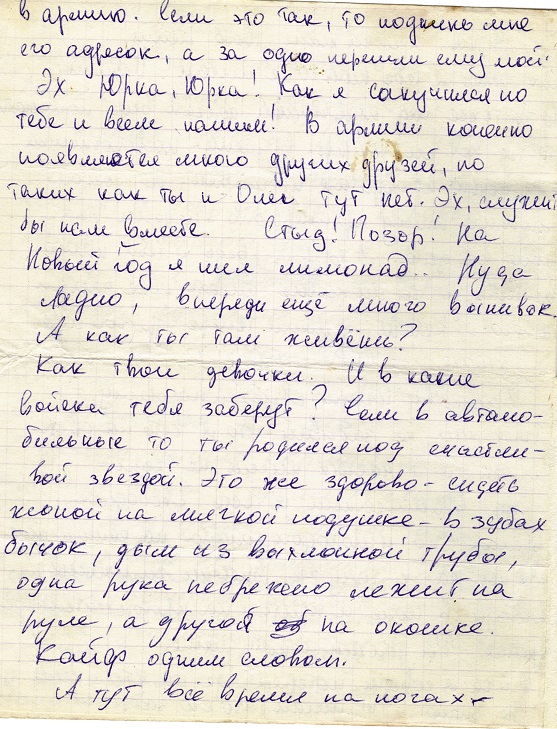 в армию. Если это так, то подкинь мне
его адресок, а за одно перешли ему мой.
Эх Юрка, Юрка! Как я соскучился по
тебе и всем нашим! В армии конечно
появляются много других друзей, но
таких как ты и Олег тут нет. Эх, служить
бы нам вместе. Стыд! Позор! На
Новый год я пил лимонад.. Ну да
ладно, впереди ещё много выпивок.
А как ты там живёшь?
Как твои девочки. И в какие
войска тебя заберут? Если в автомо-
бильные то ты родился под счастли-
вой звездой. Это же здорово - сидеть
жопой на мягкой подушке - в зубах
бычок, дым из выхлопной трубы,
одна рука небрежно лежит на
руле, а другой на окошке.
Кайф одним словом.
А тут всё время на ногах -